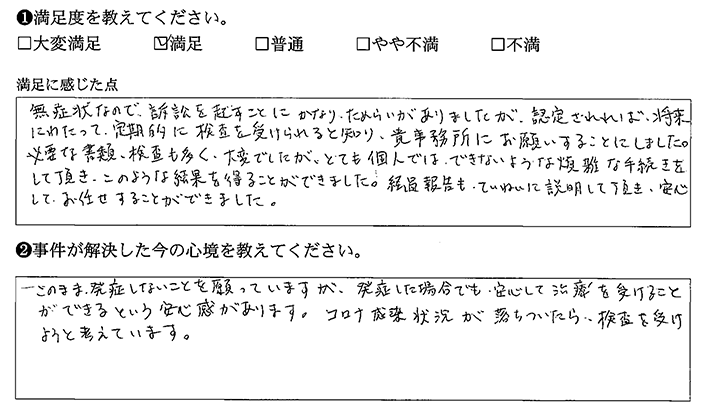 ❶満足度を教えてください。
□大変満足 ☑満足 □普通 □やや不満 □不満
満足に感じた点
無症状なので、訴訟を起すことにかなり、ためらいがありましたが、認定されれば、将来
にわたって、定期的に検査を受けられると知り、貴事務所にお願いすることにしました。
必要な書類、検査も多く、大変でしたが、とても個人では、できないような煩雑な手続きを
して頂き、このような結果を得ることができました。経過報告も、ていねいに説明して頂き、安心
して、お任せすることができました。
❷事件が解決した今の心境を教えてください。
このまま、発症しないことを願っていますが、発症した場合でも、安心して治療を受けること
ができるという安心感があります。コロナ感染状況が落ちついたら、検査を受け
ようと考えています。